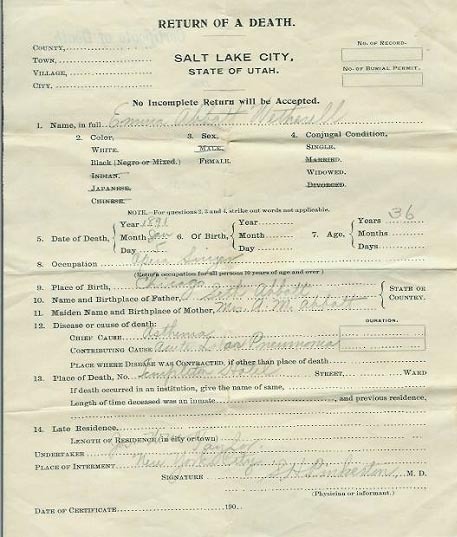 RETURN OF A DEATH.
COUNTY,
TOWN,
VILLAGE,
CITY,
SALT LAKE CITY,
STATE OF UTAH.
No. of Record.
No. of Burial Permit.
No Incomplete Return will be Accepted.
1. Name, in full Emma Abbott Wetherell
2. Color, 3. Sex, 4. Conjugal Condition,
WHITE. MALE. SINGLE.
Black (Negro or Mixed.) FEMALE. MARRIED.
INDIAN. WIDOWED.
JAPANESE. DIVORCED.
CHINESE.
NOTE.—For questions 2, 3 and 4, strike out words not applicable.
5. Date of Death, Year 1891 Month Jan Day 5 6. Of Birth, Year Month Day 7. Age, Years 36 Months Days
8. Occupation Singer
(Return occupation for all persons 10 years of age and over)
9. Place of Birth, Chicago
10. Name and Birthplace of Father, Seth Abbott
11. Maiden Name and Birthplace of Mother, Mrs. A. M. Abbott
STATE OR COUNTRY.
12. Disease or cause of death:
CHIEF CAUSE Asthma
DURATION.
CONTRIBUTING CAUSE Acute Pneumonia
PLACE WHERE DISEASE WAS CONTRACTED, if other than place of death
13. Place of Death, No. Templeton Hotel STREET, WARD
If death occurred in an institution, give the name of same,
Length of time deceased was an inmate , and previous residence,
14. Late Residence,
LENGTH OF RESIDENCE (in city or town)
UNDERTAKER Taylor
PLACE OF INTERMENT New York City
SIGNATURE M. D.
(Physician or informant.)
DATE OF CERTIFICATE 190